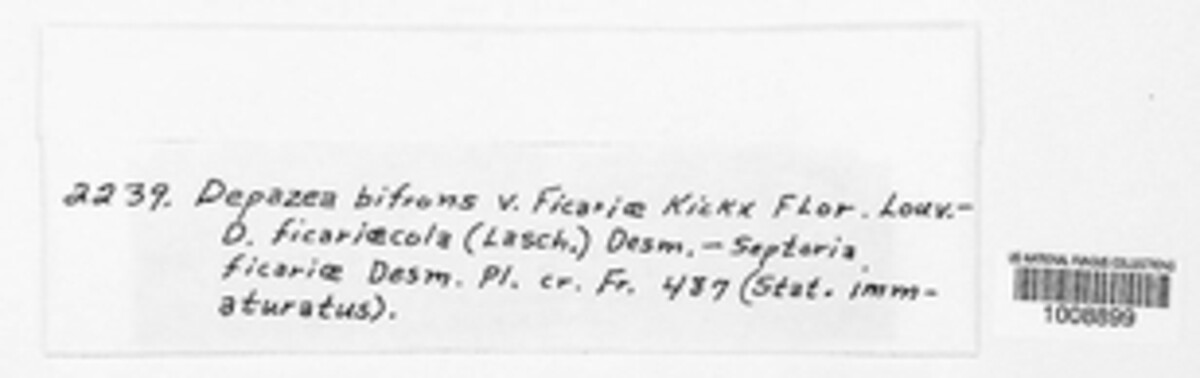 2239. Depazea bifrons v. Ficariæ Kickx Flor. Louv.-
D. ficariæcola (Lasch.) Desm. - Septoria
ficariæ Desm. Pl. cr. Fr. 487 (Stat. imm-
aturatus).
US NATIONAL FUNGUS COLLECTIONS
1008899